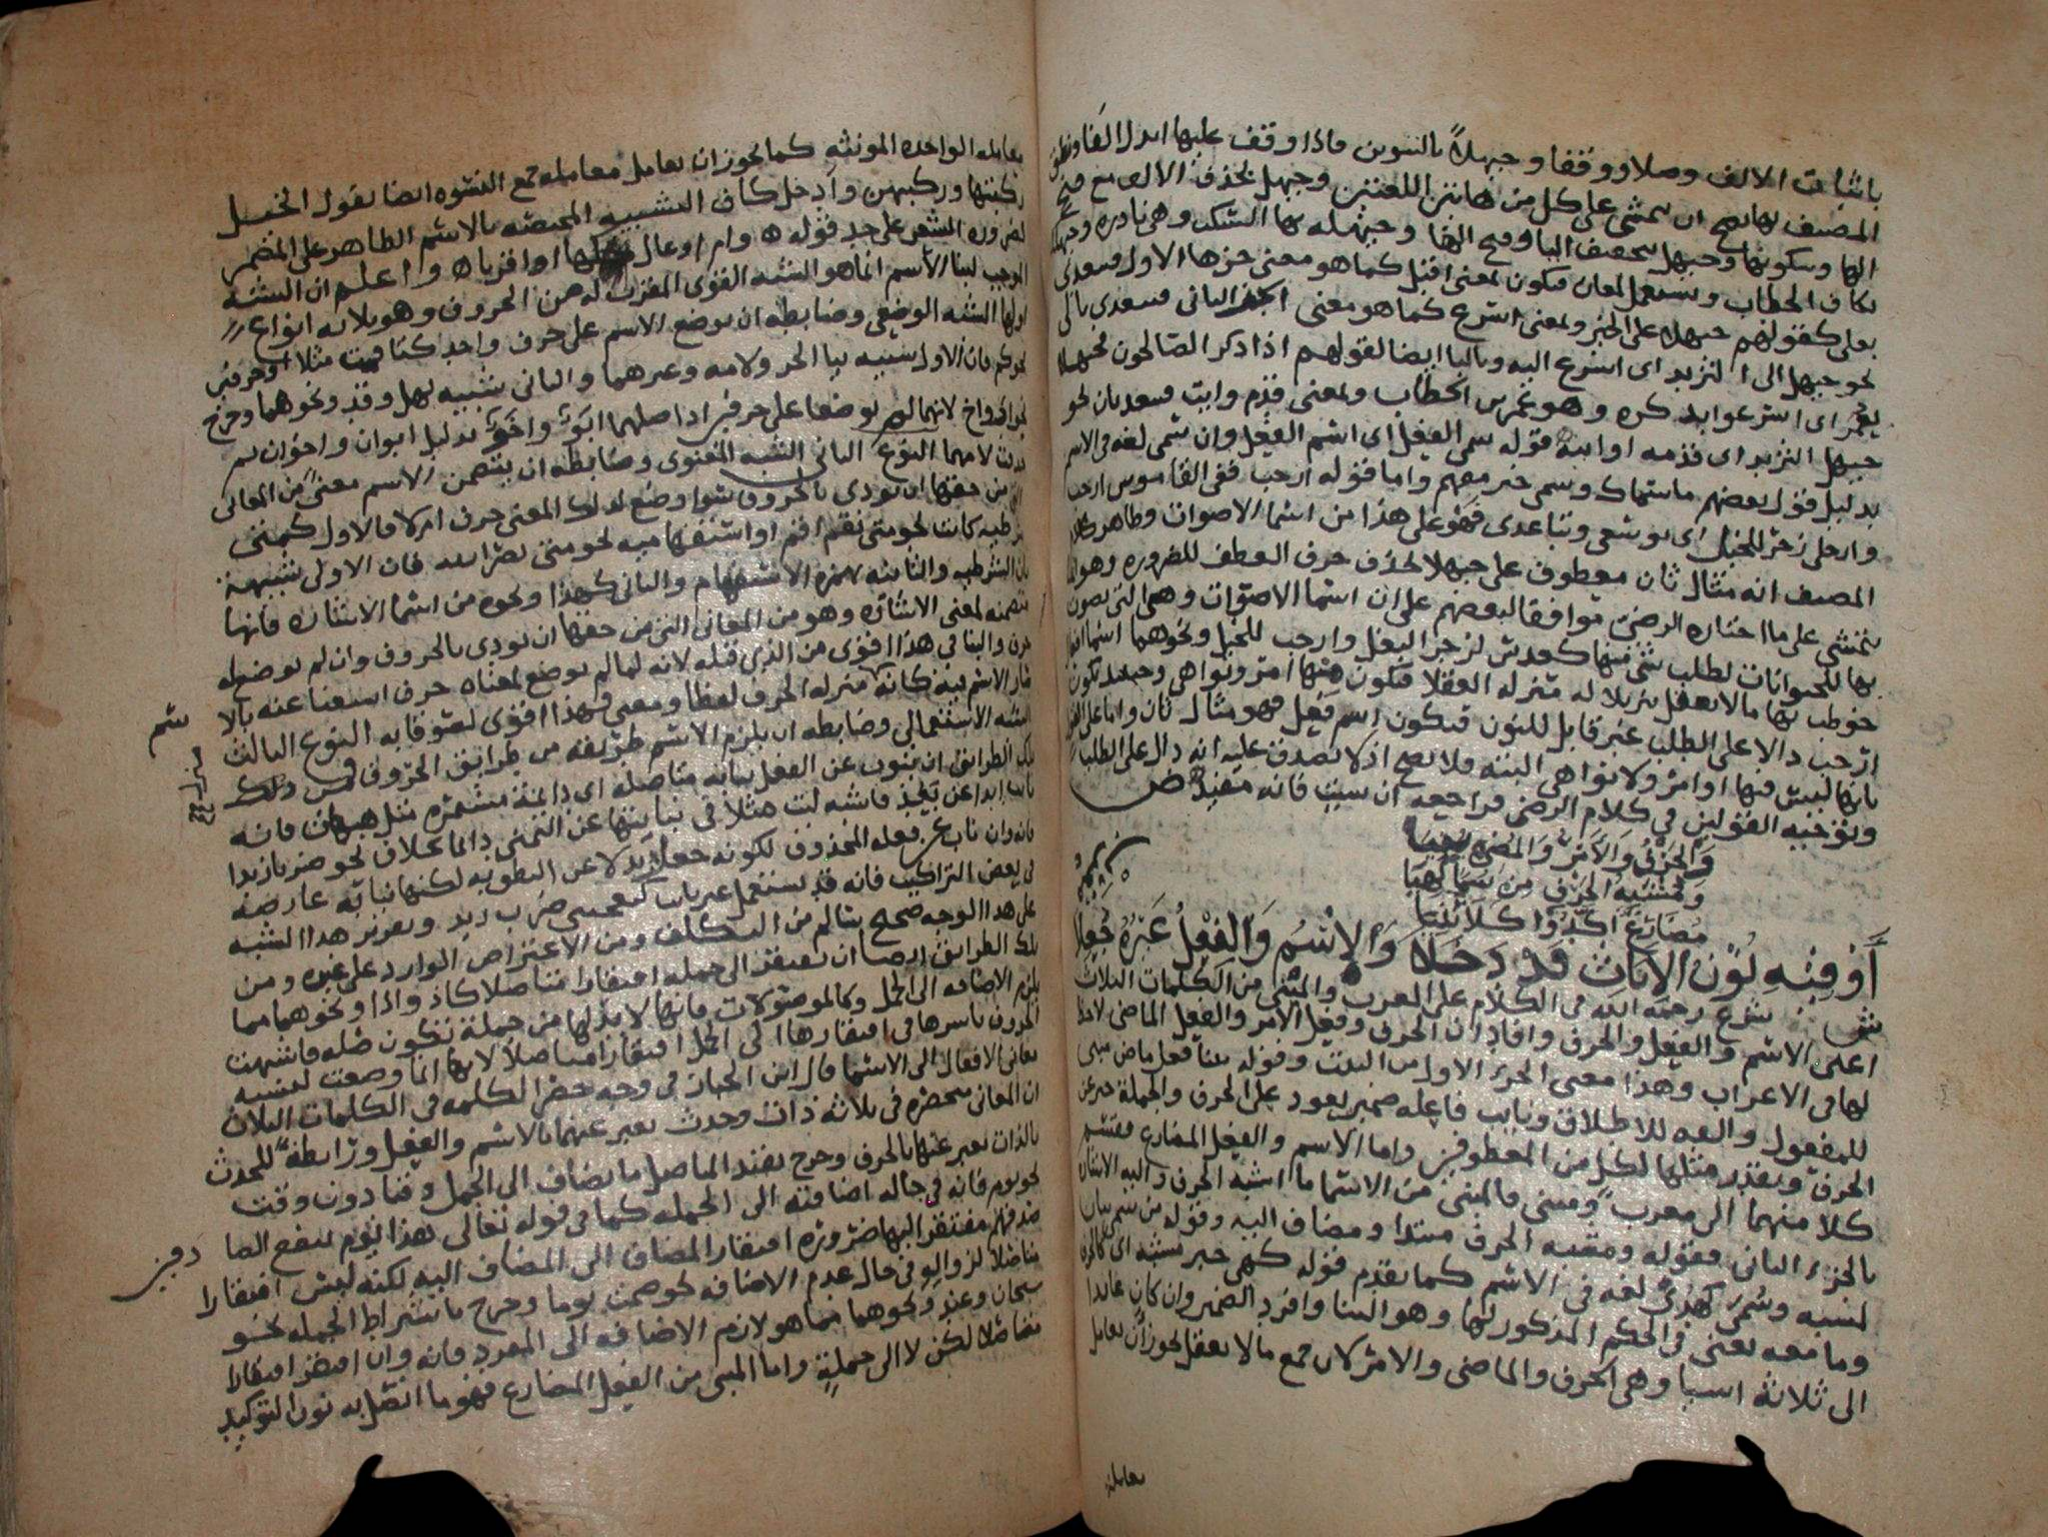 باثبات الالف وصلا ووقفا وحيهلاً بالتنوين فاذا وقف عليها ابدل الفا ونطق
المصنف بها يصح ان يمشى على كل من هاتين اللغتين وحيهل بحذف الالف مع فتح
الها وسكونها وحيهل بتخفيف اليا وفتح الها وحيهله بها السكت وهى نادره وحيهلك
بكاف الخطاب وتستعمل لمعان فيكون بمعنى اقبل كما هو معنى جزها الاول فتعدى
بعلى كقولهم حيهلا على الخير وبمعنى اسرع كما هو معنى الثانى فتعدى بالى
نحو حيهل الى الثريد اى اسرع اليه وبالبا ايضا لقولهم اذا ذكر الصالحون فحيهلا
بعمر اى اسرعوا بذكره وهو عمر بن الخطاب وبمعنى قدم وايت فتعد بان نحو
حيهل الثريد اى قدمه او ايته قوله سمى الفعل اى اسم الفعل وان سمى لغه فى الاسم
بدليل قول بعضهم ما سماك وسمى خبر معهم واما قوله ارحب ففى القاموس ارحب
وارحل زجر للخيل اى توسعى وتباعدى فهو على هذا من اسما الاصوات وظاهر كلام
المصنف انه مثال ثان معطوف على حيهلا بحذف حرف العطف للضروره وهو انما
يتمشى على ما اختاره الرضى موافقا لبعضهم على ان اسما الاصوات وهى التى يصوت
بها للحيوانات لطلب شى منها كعدس لزجر البغل وارحب للخيل ونحوهما اسما افعال
خوطب بها ما لا يعقل تنزيلا له منزله العقلا فتكون منها امر ونواهى وحينئذ تكون
ارحب دالا على الطلب غير قابل للنون فيكون اسم فعل فهو مثال ثان واما على القول
بانها ليس فيها اوامر ولا نواهى البته فلا يصح اذ لا يصدق عليه انه دال على الطلب
وتوجيه القولين فى كلام الرضى فراجعه ان شيت فانه مفيد ص
وَالحَرْفُ وَالاَمْرُ وَالمُضِى بُنِيَا
وَمُشْبِهُ الحَرْفِ مِنْ سُمًا كَهِيَا
أَوْ فِيْهِ نُوْنُ الاِنَاثِ قَدْ دَخَلاَ وَالاِسْمُ وَالفِعْلُ غَيْرُهُ جُعِلا
ش شرع رحمه الله فى الكلام على المعرب والمبنى من الكلمات الثلاث
اعنى الاسم والفعل والحرف وافاد ان الحرف وفعل الامر والفعل الماضى لا حظ
لها فى الاعراب وهذا معنى الجزء الاول من البيت وقوله بنيا فعل ماض مبنى
للمفعول والفه للاطلاق ونايب فاعله ضمير يعود على الحرف والجملة خبر عن
الحرف ويقدر مثلها لكل من المعطوفين واما الاسم والفعل المضارع فينقسم
كلا منهما الى معرب ومبنى فالمبنى من الاسما ما اشبه الحرف واليه الاشاره
بالجزء الثانى فقوله ومشبه الحرف مبتدا ومضاف اليه وقوله من سمى بيان
لمشبه وسُمى كهُدى لغه فى الاسم كما تقدم قوله كهى خبر مشبه اى كالحرف
وما معه يعنى فى الحكم المذكور لها وهو البنا وافرد الضمير وان كان عايدا
الى ثلاثة اشيا وهى الحرف والماضى والامر لان جمع ما لا يعقل يجوز ان يعامل
يعامله
معامله الواحده المونثه كما يجوز ان يعامل معامله جمع النسوه ايضا يقول الخيل
ركبتها وركبهن وادخل كاف التشبيه المختصه بالاسم الظاهر على المضمر
لضروره الشعر على حد قوله وام اوعال كها او اقربا ه واعلم ان الشبه
الموجب لبنا الاسم انما هو الشبه القوى المقرب له من الحروف وهو ثلاثه انواع
اولها الشبه الوضعى وضابطه ان يوضع الاسم على حرف واحد كتا قمت مثلا او حرفين
نحو كم فان الاول شبيه ببا الجر ولامه وغيرهما والثانى شبيه بهل وقد ونحوهما وخرج
نحو اب واخ لانهما لم يوضعا على حرفين اذ اصلهما ابَوٌ واخَوٌ بدليل ابوان واخوان ثم
حذفت لامهما النوع الثانى الشبه المعنوى وضابطه ان يتضمن الاسم معنىً من المعانى
التى من حقها ان تودى بالحروف سوا وضع لذلك المعنى حرف ام لا فالاول كمتى
شرطيه كانت نحو متى تقم اقم او استفهاميه نحو متى نصر الله فان الاولى شبيهة
بان الشرطيه والثانيه بهمزه الاستفهام والثانى كهذا ونحوه من اسما الاشاره فانها
متضمنه لمعنى الاشاره وهو من المعانى التى من حقها ان تودى بالحروف وان لم توضع له
حرف والبنا فى هذا اقوى من الذى قبله لانه لما لم يوضع لمعناه حرف استغنا عنه بالا
صار الاسم فيه كانه منزله الحرف لفظا ومعنى فهذا اقوى لتعوقا به النوع الثالث
الشبه الاستعمالى وضابطه ان يلزم الاسم طريقه من طرايق الحروف فمن ذلك
تلك الطرايق ان ينوب عن الفعل نيابه متاصله اى دايمة مستمره مثل هيهات فانه
نايب ابدا عن بَعُد فاشبه ليت مثلا فى نيابتها عن التمنى دايما بخلاف نحو ضربا زيدا
فانه وان ناب عن فعله المحذوف لكونه جعل بدلا عن النطق به لكنها نيابه عارضه
فى بعض التراكيب فانه قد يستعمل غير نايب كيعجبنى ضرب زيد وتقرير هذا الشبه
على هذا الوجه صحيح سالم من التكلف ومن الاعتراض الوارد على غيره ومن
تلك الطرايق ايضا ان يفتقر الى جمله افتقارا متاصلا كاذ واذا ونحوهما مما
يلزم الاضافه الى الجمل وكالموصولات فانها لا بد لها من جملة تكون صله فاشبهت
الحروف باسرها فى افتقارها الى الجمل افتقارا متاصلا لانها انما وضعت لنسبه
معانى الافعال الى الاسما قال ابن الخباز فى وجه حصر الكلمه فى الكلمات الثلاث
ان المعانى منحصره فى ثلاثه ذات وحدث يعبر عنهما بالاسم والفعل ورابطة للحدث
بالذات يعبر عنها بالحرف وخرج بقيد المتاصل ما يضاف الى الجمل وقتا دون وقت
نحو يوم فانه فى حاله اضافته الى الجمله كما فى قوله تعالى هذا يوم ينفع الصا
دقين
صدقهم مفتقر اليها ضروره افتقار المضاف الى المضاف اليه لكنه ليس افتقارا
متاصلا لزواله فى حال عدم الاضافه نحو صمت يوما وخرج باشتراط الجمله نحو
سبحان وعند ونحوهما مما هو لازم الاضافه الى المفرد فانه وان افتقر افتقارا
متاصلا لكن لا الى جملةٍ واما المبنى من الفعل المضارع فهو ما اتصل به نون التوكيد